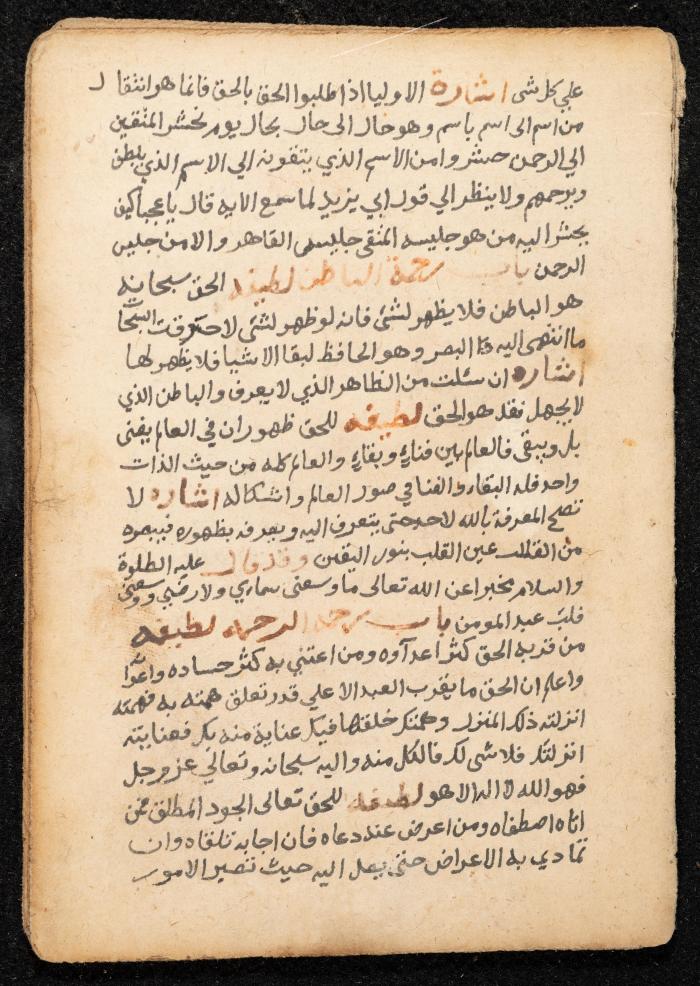 علي كل شي اشارة الاوليا اذا طلبوا الحق بالحق فانما هو انتقال
من اسم الى اسم باسم وهو حال الى حال بحال يوم نحشر المتقين
الي الرحمن حشروا من الاسم الذي يتقونه الي الاسم الذي يلطن
ويرحمهم ولا ينظر الي قول ابي يزيد لما سمع الايه قال يا عجبا كيف
يحشر اليه من هو جليسه المتقي جليس القاهر والامن جليس
الرحمن باب رحمة الباطن لطيفه الحق سبحانه
هو الباطن فلا يظهر لشئ فانه لو ظهر لشئ لاحترقت السبحا
ما انتهى اليه البصر وهو الحافظ لبقا الاشيا فلا يظهر لها
اشاره ان سئلت من الظاهر الذي لا يعرف والباطن الذي
لا يجهل فقد هو الحق لطيفه للحق ظهوران في العالم يفنى
بل ويبقى فالعالم بين فناء وبقاء والعالم كله من حيث الذات
واحد فله البقاء والفنا في صور العالم واشكاله اشاره لا
تصح المعرفة بالله لاحد حتى يتعرف اليه ويعرفه بظهوره فيبصره
من القلب عين القلب بنور اليقين وقد قال عليه الصلوة
والسلام مخبرا عن الله تعالى ما وسعنى سماري ولا ارضي ووسعنى
قلب عبد المومن باب رحمة الرحمه لطيفه
من قربه الحق كثر اعدآوه ومن اعتنى به كثر حساده
واعلم ان الحق ما يقرب العبد الا علي قدر تعلق همته به فهمته
انزلته ذلك المنزل وهمتك خلقها فيك عناية منه بك فعنايته
انزلتك فلا شى لك فالكل منه واليه سبحانه وتعالي عز وجل
فهو الله لا اله الا هو لطيفه للحق تعالى الجود المطلق فمن
اتاه اصطفاه ومن اعرض عنه دعاه فان اجابه تلقاه وان
تمادي به الاعراض حتى يصل اليه حيث تصير الامور